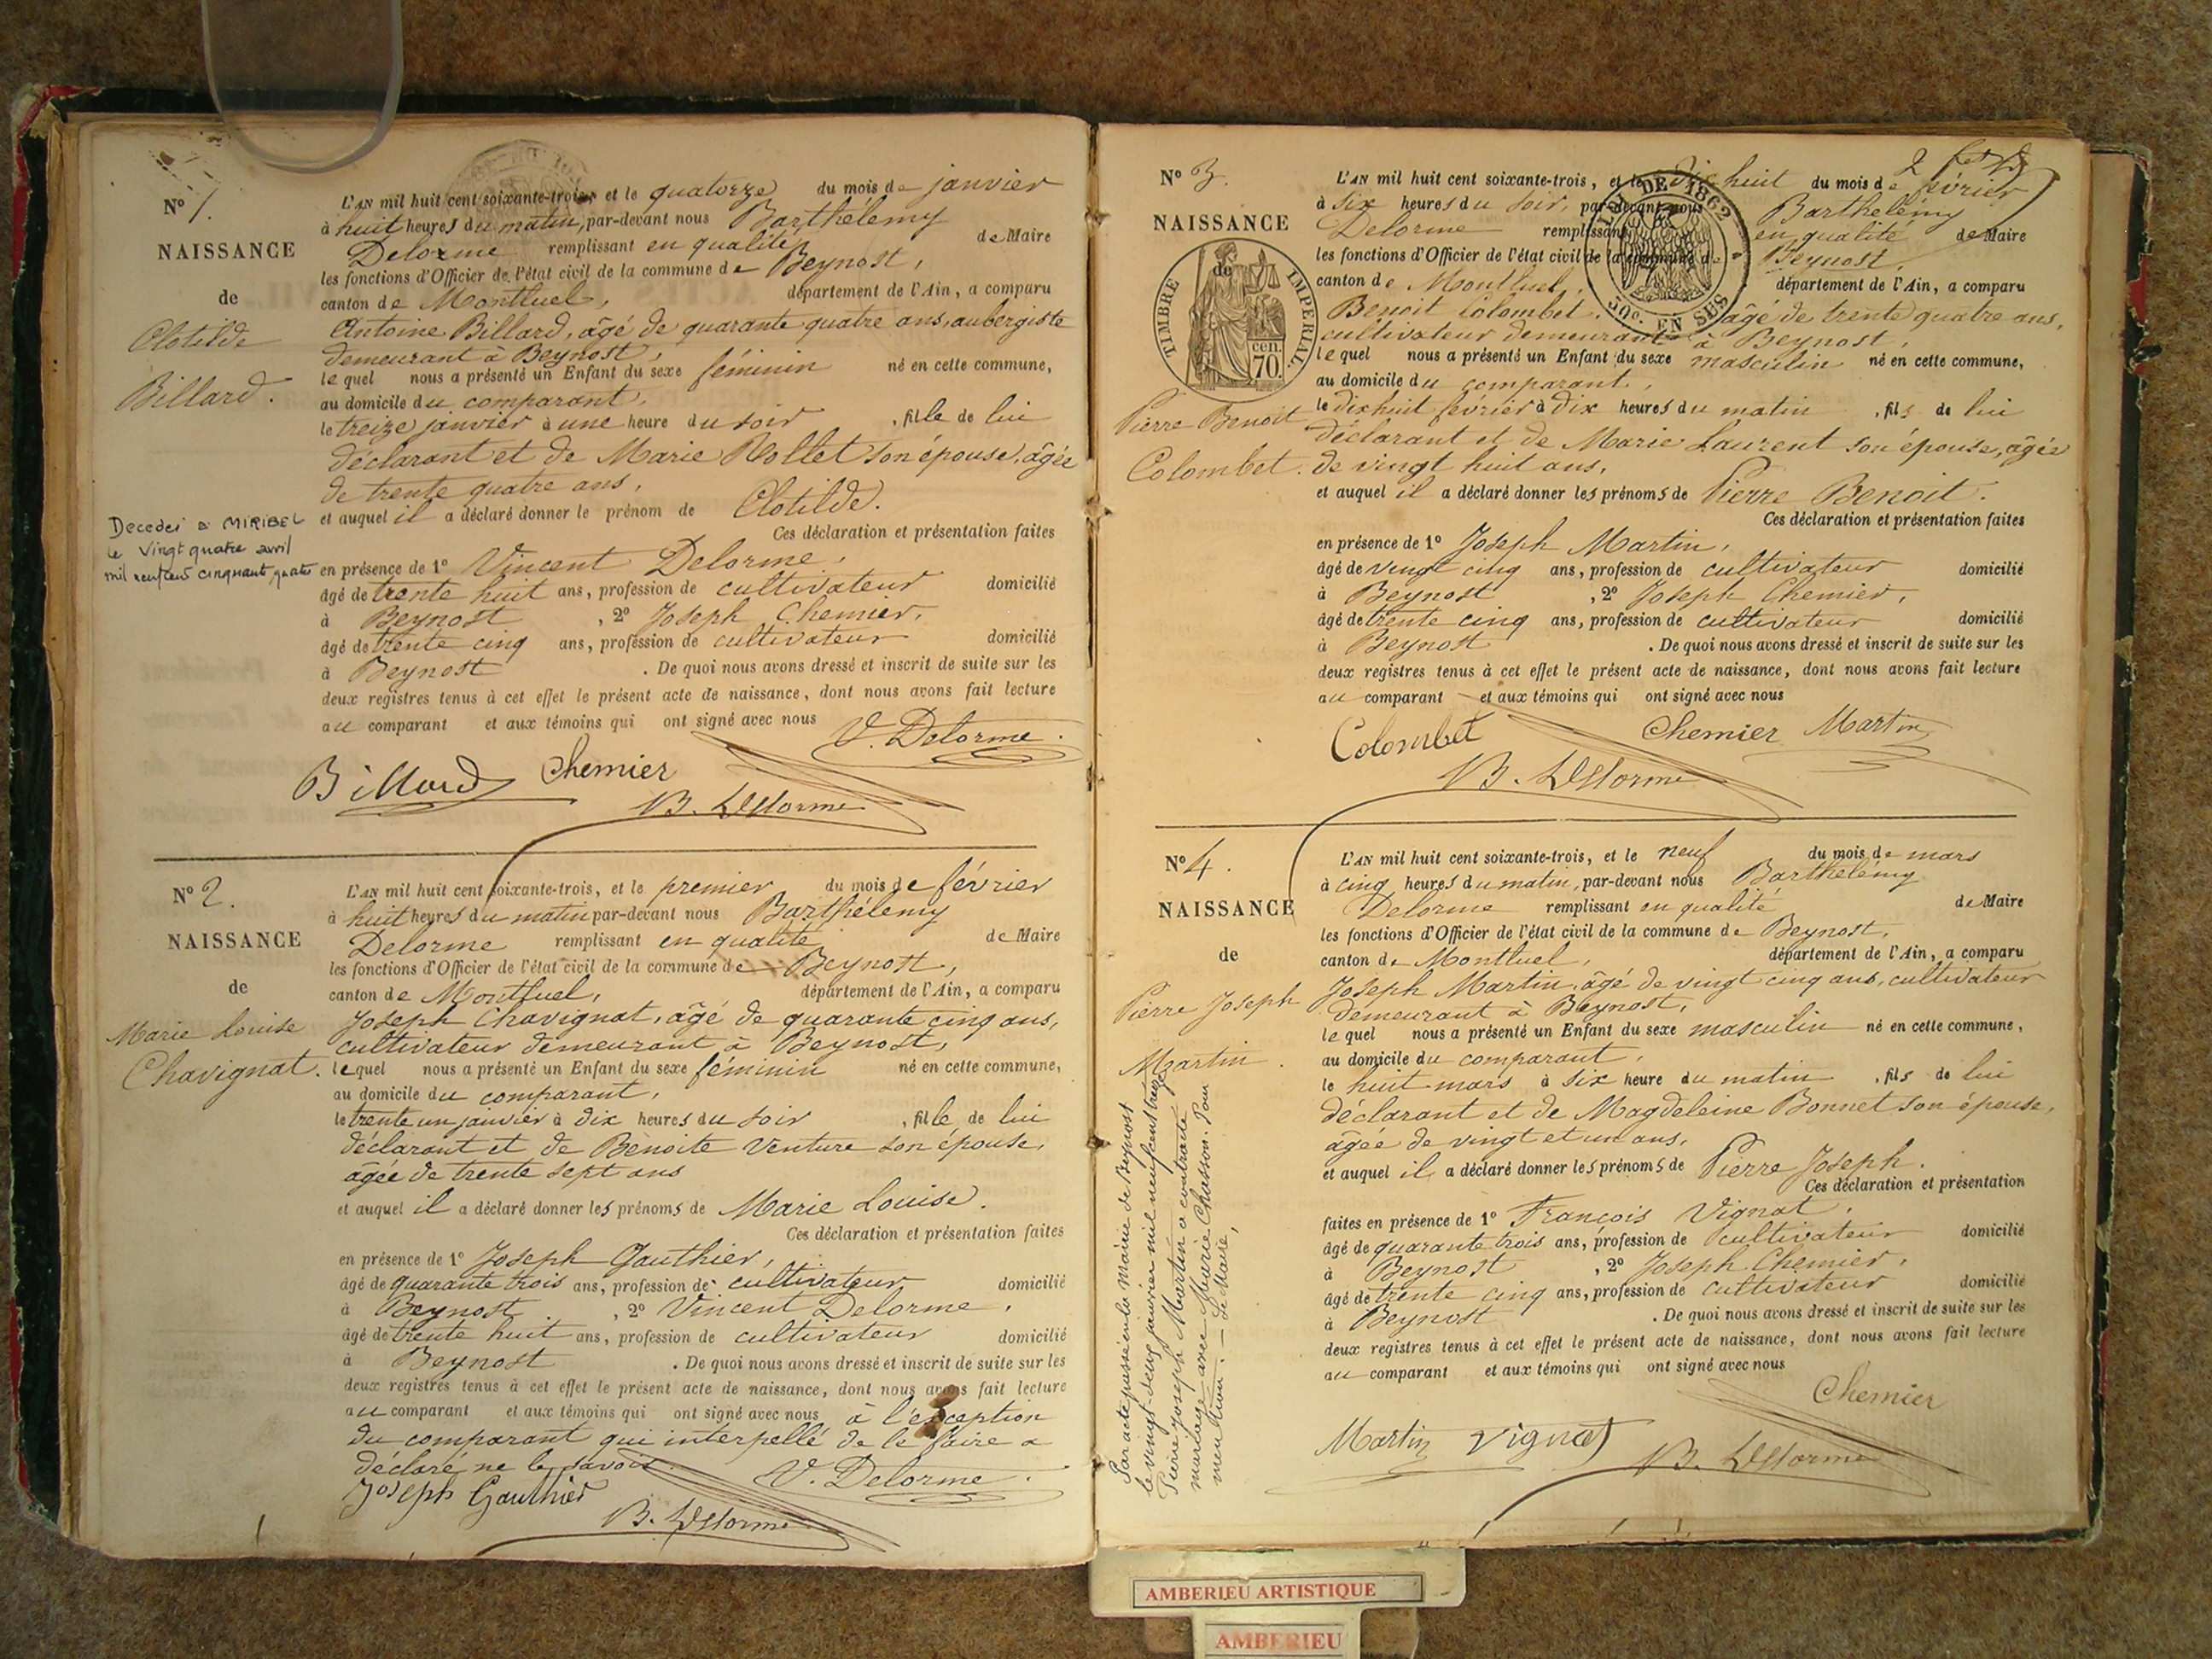 N° 1.
NAISSANCE
de
Clotilde
Billard.
Decedeé a MIRIBEL
le vingt quatre avril
mil neuf cent cinquante quatre
L'AN mil huit cent soixante-trois, et le quatorze du mois de janvier
à huit heures du matin, par-devant nous Barthélemy
Delorme remplissant en qualité de Maire
les fonctions d'Officier de l'état civil de la commune de Beynost,
canton de Montluel, département de l'Ain, a comparu
Antoine Billard, âgé de quarante quatre ans, aubergiste
demeurant à Beynost,
lequel nous a présenté un Enfant du sexe féminin né en cette commune,
au domicile du comparant,
le treize janvier à une heure du soir, fille de lui
déclarant et de Marie Rollet son épouse, âgée
de trente quatre ans,
et auquel il a déclaré donner le prénom de Clotilde.
Ces déclaration et présentation faites
en présence de 1° Vincent Delorme,
âgé de trente huit ans, profession de cultivateur domicilié
à Beynost, 2° Joseph Chemier,
âgé de trente cinq ans, profession de cultivateur domicilié
à Beynost. De quoi nous avons dressé et inscrit de suite sur les
deux registres tenus à cet effet le présent acte de naissance, dont nous avons fait lecture
au comparant et aux témoins qui ont signé avec nous
V. Delorme.
Billard Chemier
B. Delorme
N° 2.
NAISSANCE
de
Marie Louise
Chavignat.
L'AN mil huit cent soixante-trois, et le premier du mois de février
à huit heures du matin par-devant nous Barthélemy
Delorme remplissant en qualité de Maire
les fonctions d'Officier de l'état civil de la commune de Beynost,
canton de Montluel, département de l'Ain, a comparu
Joseph Chavignat, âgé de quarante cinq ans,
cultivateur demeurant à Beynost,
lequel nous a présenté un Enfant du sexe féminin né en cette commune,
au domicile du comparant,
le trente un janvier à dix heures du soir, fille de lui
déclarant et de Benoite Venture son épouse,
âgée de trente sept ans
et auquel il a déclaré donner les prénoms de Marie Louise.
Ces déclaration et présentation faites
en présence de 1° Joseph Gauthier,
âgé de quarante trois ans, profession de cultivateur domicilié
à Beynost, 2° Vincent Delorme,
âgé de trente huit ans, profession de cultivateur domicilié
à Beynost. De quoi nous avons dressé et inscrit de suite sur les
deux registres tenus à cet effet le présent acte de naissance, dont nous avons fait lecture
au comparant et aux témoins qui ont signé avec nous à l'exception
du comparant qui interpellé de le faire a
déclaré ne le savoir.
V. Delorme.
Joseph Gauthier
B. Delorme
N° 3.
NAISSANCE
de
TIMBRE IMPERIAL.
cen. 70.
Pierre Benoit
Colombet.
DE 1862
50c. EN SUS
L'AN mil huit cent soixante-trois, et le dix huit du mois de février
à six heures du soir, par-devant nous Barthélemy
Delorme remplissant en qualité de Maire
les fonctions d'Officier de l'état civil de la commune de Beynost,
canton de Montluel, département de l'Ain, a comparu
Benoit Colombet, âgé de trente quatre ans,
cultivateur demeurant à Beynost,
lequel nous a présenté un Enfant du sexe masculin né en cette commune,
au domicile du comparant,
le dix huit février à dix heures du matin, fils de lui
déclarant et de Marie Laurent son épouse, âgée
de vingt huit ans,
et auquel il a déclaré donner les prénoms de Pierre Benoit.
Ces déclaration et présentation faites
en présence de 1° Joseph Martin,
âgé de vingt cinq ans, profession de cultivateur domicilié
à Beynost, 2° Joseph Chemier,
âgé de trente cinq ans, profession de cultivateur domicilié
à Beynost. De quoi nous avons dressé et inscrit de suite sur les
deux registres tenus à cet effet le présent acte de naissance, dont nous avons fait lecture
au comparant et aux témoins qui ont signé avec nous
Colombet Chemier Martin
B. Delorme
N° 4.
NAISSANCE
de
Pierre Joseph
Martin.
Par acte passé en la mairie de Beynost
le vingt-deux janvier mil neuf cent treize
Pierre Joseph Martin a contracté
mariage avec Marie Chasson. Pour
mention. — Le Maire,
L'AN mil huit cent soixante-trois, et le neuf du mois de mars
à cinq heures du matin, par-devant nous Barthélemy
Delorme remplissant en qualité de Maire
les fonctions d'Officier de l'état civil de la commune de Beynost,
canton de Montluel, département de l'Ain, a comparu
Joseph Martin, âgé de vingt cinq ans, cultivateur
demeurant à Beynost,
lequel nous a présenté un Enfant du sexe masculin né en cette commune,
au domicile du comparant,
le huit mars à six heure du matin, fils de lui
déclarant et de Magdeleine Bonnet son épouse,
âgée de vingt et un ans,
et auquel il a déclaré donner les prénoms de Pierre Joseph.
Ces déclaration et présentation
faites en présence de 1° François Vignat,
âgé de quarante trois ans, profession de cultivateur domicilié
à Beynost, 2° Joseph Chemier,
âgé de trente cinq ans, profession de cultivateur domicilié
à Beynost. De quoi nous avons dressé et inscrit de suite sur les
deux registres tenus à cet effet le présent acte de naissance, dont nous avons fait lecture
au comparant et aux témoins qui ont signé avec nous
Chemier
Martin Vignat
B. Delorme
AMBERIEU ARTISTIQUE
AMBERIEU